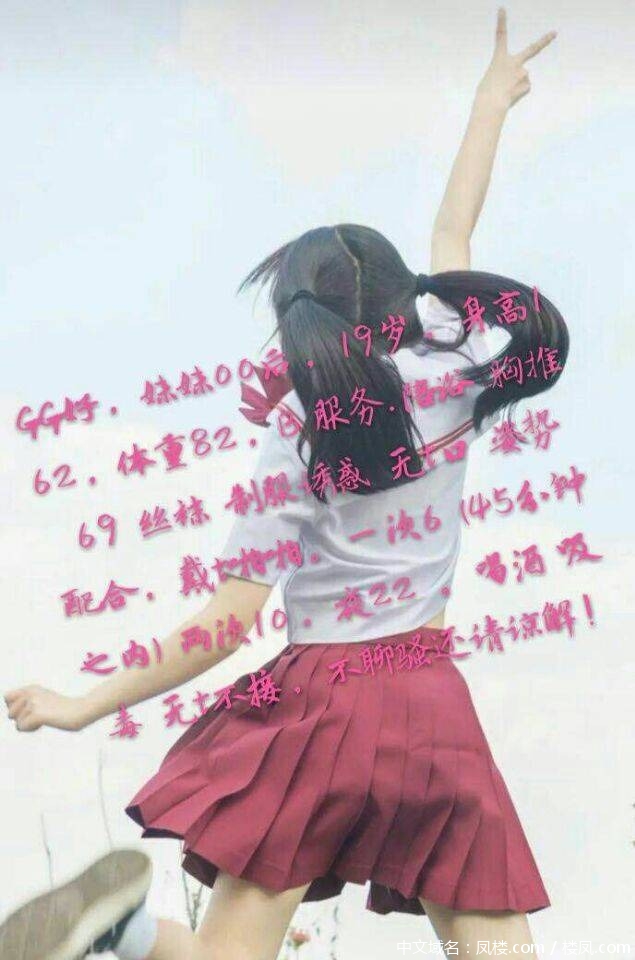 GG好，妹妹00后，19岁，身高1
62，体重82，B 服务.陪浴 胸推
69 丝袜 制服诱惑 无t口 姿势
配合，戴t啪啪。一次6 (45分钟
之内) 两次10，夜22 ，喝酒 吸
毒 无t不接，不聊骚还请谅解！
中文域名：凤楼.com / 楼凤.com